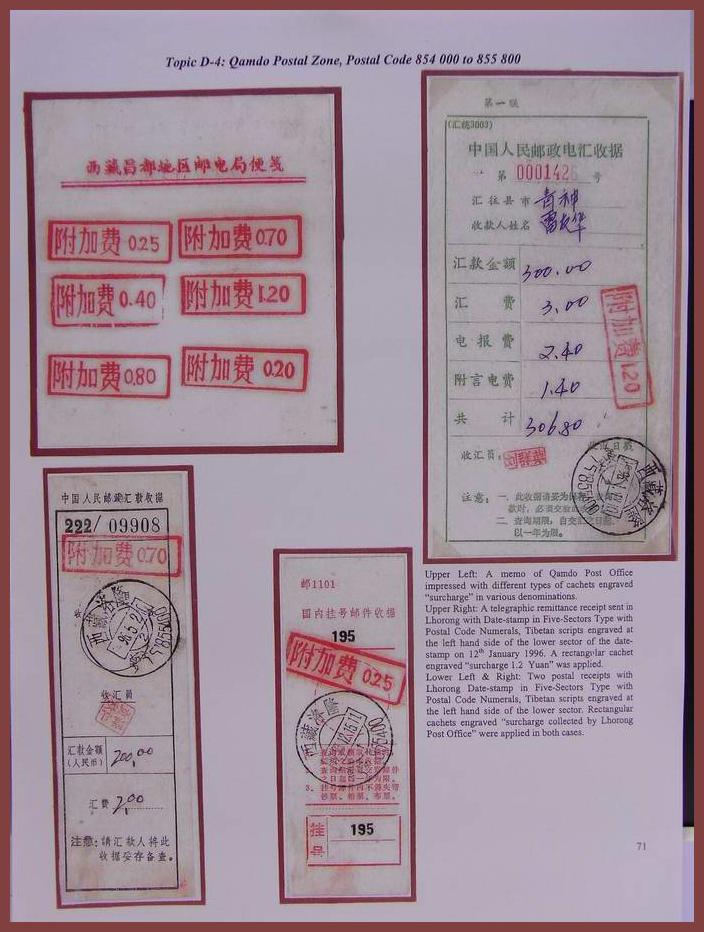 Topic D-4: Qamdo Postal Zone, Postal Code 854 000 to 855 800
西藏昌都地区邮电局便笺
附加费 0.25
附加费 0.70
附加费 0.40
附加费 1.20
附加费 0.80
附加费 0.20
第一联
(汇统3003)
中国人民邮政电汇收据
第 000142 号
汇往县市 青神
收款人姓名
汇款金额 300.00
汇费 3.00
电报费 2.40
附言电费 1.40
共计 306.80
附加费 1.20
收汇员:
收汇日戳
注意: 一、此收据请妥为保存
款时，必须交验
二、查询期限，自交汇之日起
以一年为限。
中国人民邮政汇款收据
222/ 09908
附加费 0.70
西藏洛隆
收汇员
汇款金额
(人民币) 200.00
汇费 2.00
注意: 請汇款人将此
收据妥存备查。
邮1101
国内挂号邮件收据
195
附加费 0.25
西藏洛隆
挂号 195
Upper Left: A memo of Qamdo Post Office
impressed with different types of cachets engraved
"surcharge" in various denominations.
Upper Right: A telegraphic remittance receipt sent in
Lhorong with Date-stamp in Five-Sectors Type with
Postal Code Numerals, Tibetan scripts engraved at
the left hand side of the lower sector of the date-
stamp on 12th January 1996. A rectangular cachet
engraved "surcharge 1.2 Yuan" was applied.
Lower Left & Right: Two postal receipts with
Lhorong Date-stamp in Five-Sectors Type with
Postal Code Numerals, Tibetan scripts engraved at
the left hand side of the lower sector. Rectangular
cachets engraved "surcharge collected by Lhorong
Post Office" were applied in both cases.
71